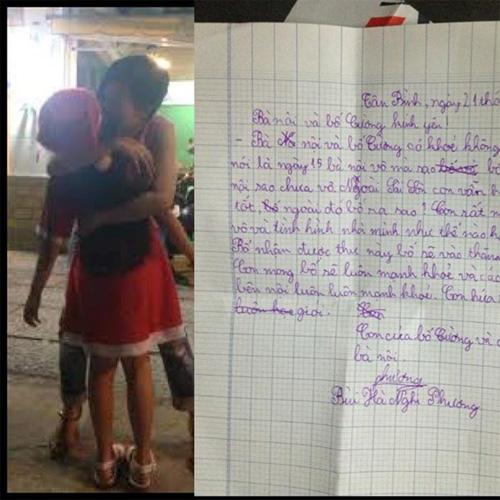 Tân Bình, ngày 21 thá
Bà nội và bố Cương kính yêu!
- Bà nội và bố Cương có khoẻ không
nói là ngày 15 bà nội vô mà sao bà
nội sao chưa vô Ngoài Sài Gòn con vẫn k
tốt, ngoài đó bố ra sao? Con rất
vô và tình hình nhà mình như thế nào
Bố nhận được thư này bố sẽ vào thăm
Con mong bố sẽ luôn mạnh khoẻ và cá
bên nội luôn luôn mạnh khoẻ. Con hứa
giỏi.
Con của bố Cương và
bà nội.
phương
Bùi Hà Nghi Phương